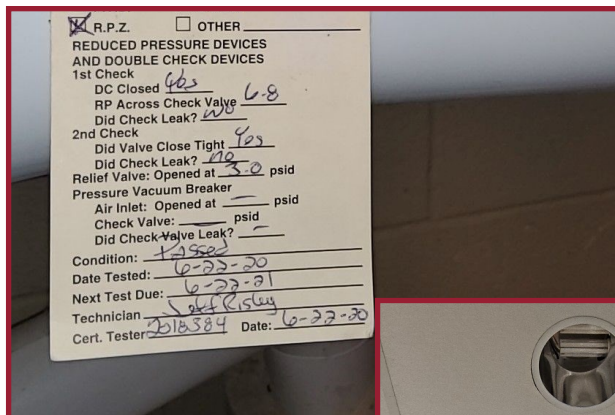 R.P.Z. OTHER
REDUCED PRESSURE DEVICES
AND DOUBLE CHECK DEVICES
1st Check
DC Closed Yes
RP Across Check Valve 6.8
Did Check Leak? No
2nd Check
Did Valve Close Tight Yes
Did Check Leak? no
Relief Valve: Opened at 3.0 psid
Pressure Vacuum Breaker
Air Inlet: Opened at — psid
Check Valve: psid
Did Check Valve Leak? —
Condition: Passed
Date Tested: 6-22-20
Next Test Due: 6-22-21
Technician Jeff Risley
Cert. Tester 2018384 Date: 6-22-20